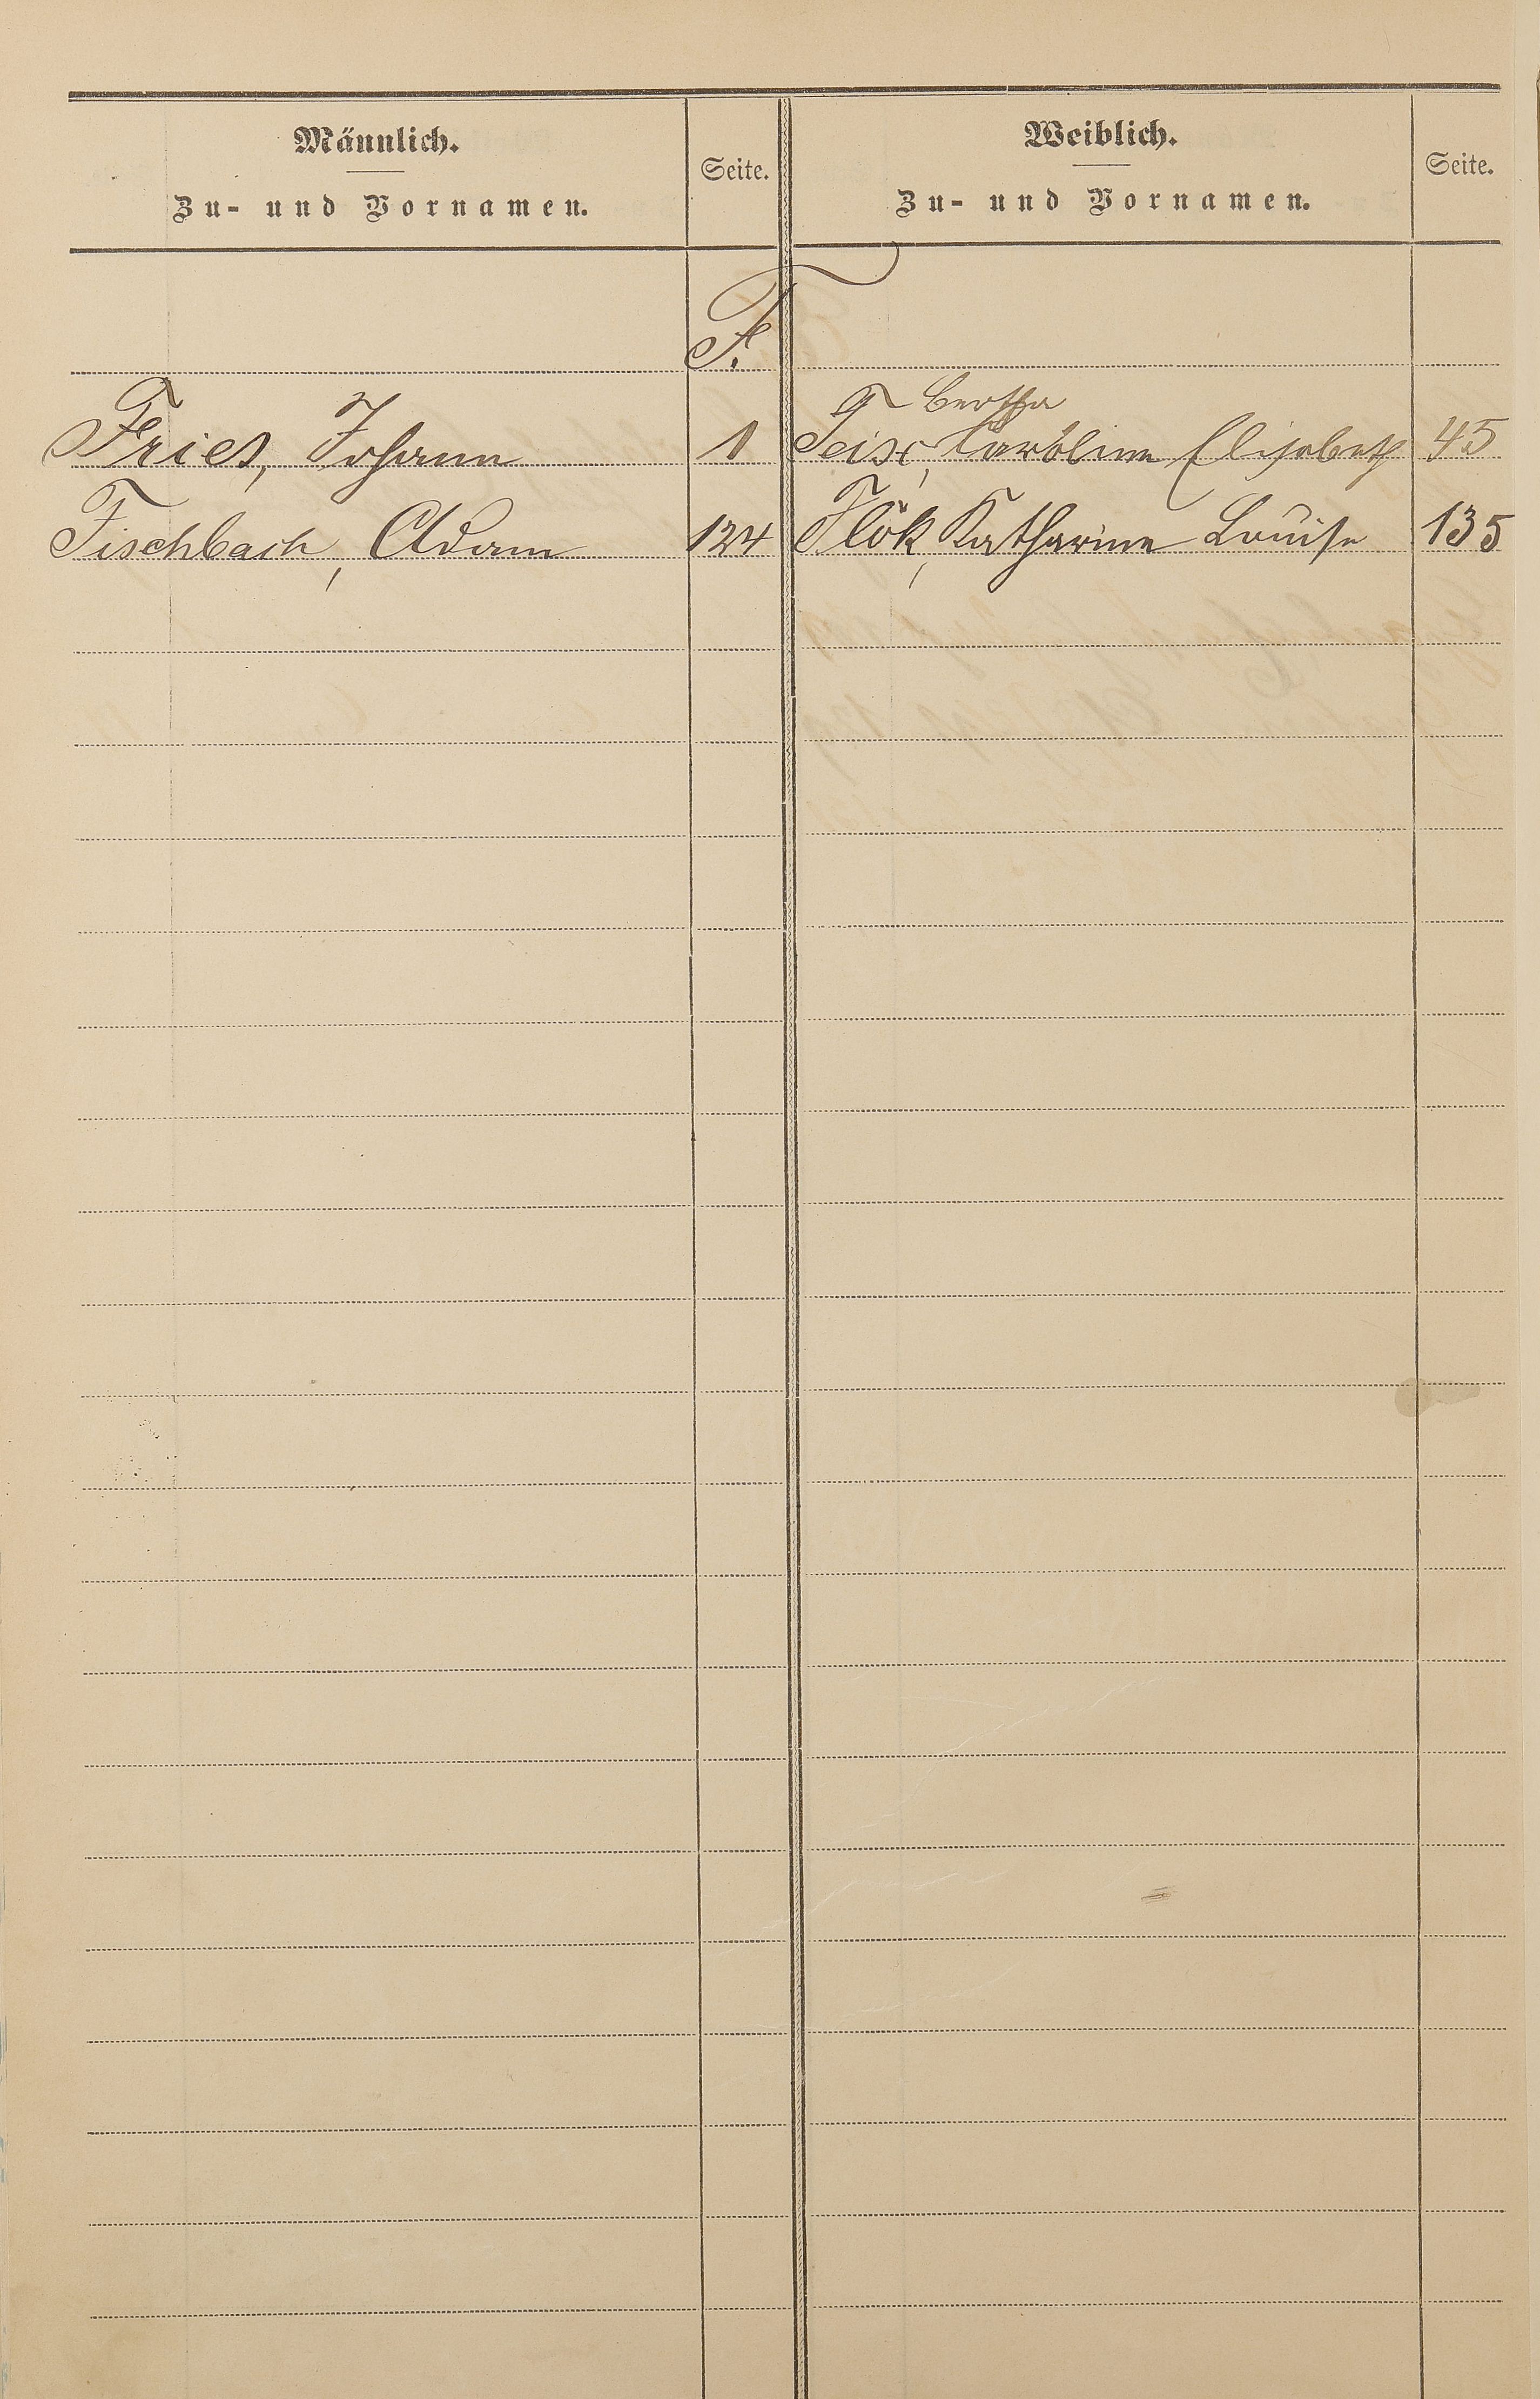 Männlich.
Zu- und Vornamen.
Seite.
Weiblich.
Zu- und Vornamen.
Seite.
F.
Fries, Johann 1
Fischbach, Adam 124
Bertha
Karoline Elisabeth 45
Flök, Katharine Louise 135